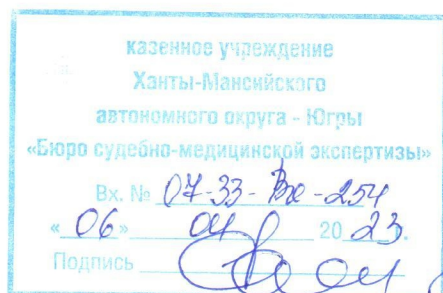 казенное учреждение
Ханты-Мансийского
автономного округа - Югры
«Бюро судебно-медицинской экспертизы»
Вх. № 07-33-Вх-254
«06» 04 2023.
Подпись